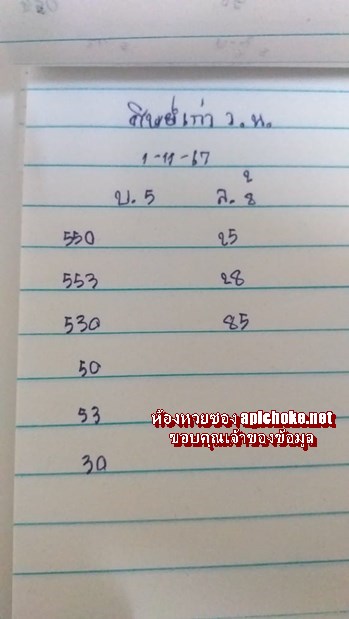 ศิษย์เก่า ว.ห.
1-11-67
2
บ.5 ล.8
550 25
553 28
530 85
50
53
30
ห้องหวยซอง apichoke.net
ขอบคุณเจ้าของข้อมูล